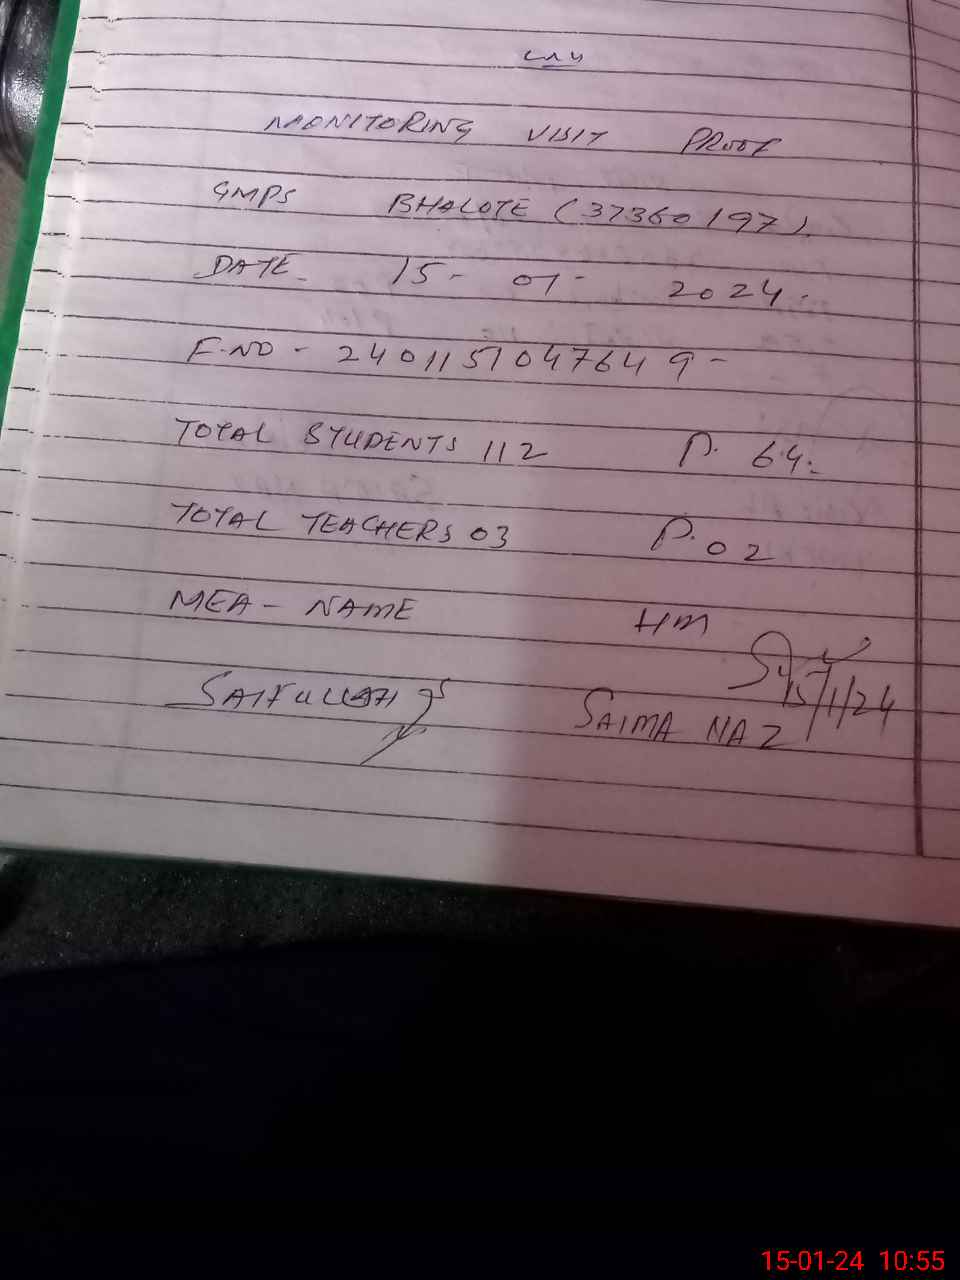 MONITORING VISIT PROOF
GMPS BHALOTE (37360197).
DATE - 15 - 01 - 2024.
F.NO - 2401151047649 -
TOTAL STUDENTS 112 P. 64.
TOTAL TEACHERS 03 P. 02
MEA - NAME HM
SAIFULLAH
15/1/24
SAIMA NAZ
15-01-24 10:55